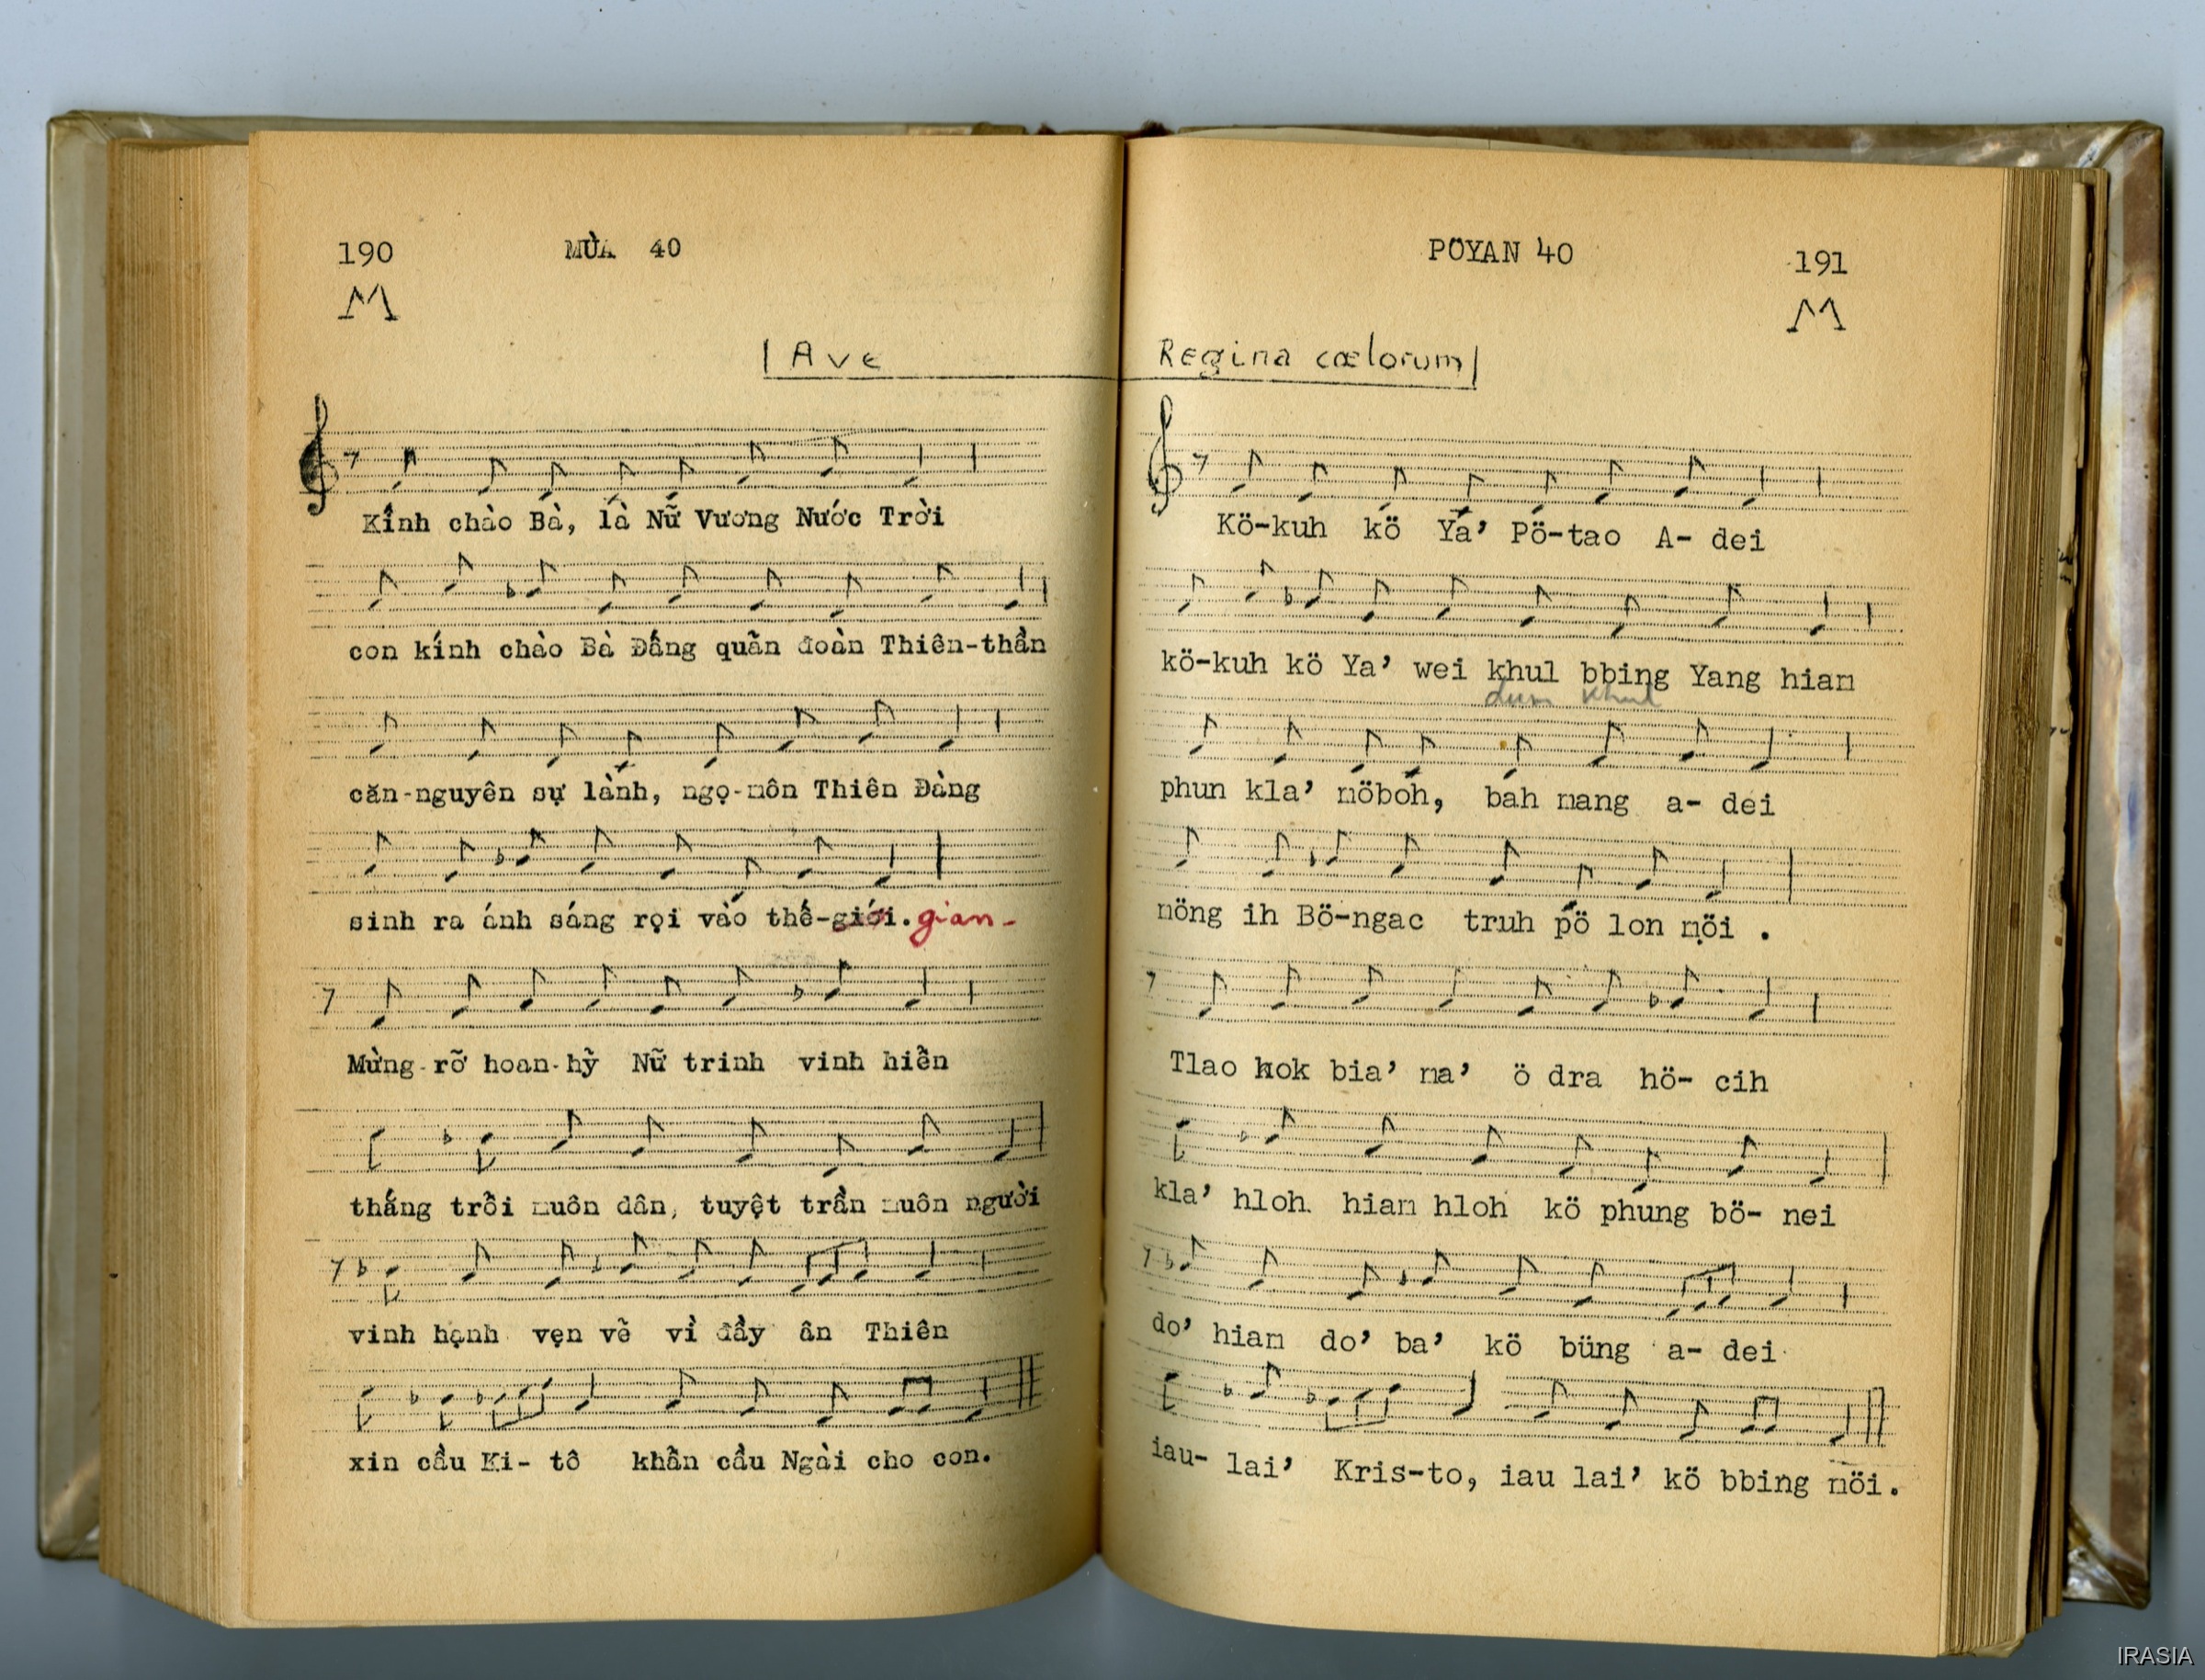 190 MÙA 40
M
Ave
Kính chào Bà, là Nữ Vương Nước Trời
con kính chào Bà Đấng quãn đoàn Thiên-thần
căn-nguyên sự lành, ngọ-môn Thiên Đàng
sinh ra ánh sáng rọi vào thế-giới. gian-
Mừng-rỡ hoan-hỷ Nữ trinh vinh hiển
thắng trỗi muôn dân, tuyệt trần muôn người
vinh hạnh vẹn vẽ vì đầy ân Thiên
xin cầu Ki-tô khẩn cầu Ngài cho con.
PÖYAN 40 191
M
Regina cœlorum
Kö-kuh kö Ya’ Pö-tao A-dei
kö-kuh kö Ya’ wei khul bbing Yang hiam
dum khul
phun kla’ möboh, bah mang a-dei
nöng ih Bö-ngac truh pö lon nöi .
Tlao hok bia’ ma’ ö dra hö-cih
kla’ hloh hiam hloh kö phung bö-nei
do’ hiam do’ ba’ kö büng a-dei
iau-lai’ Kris-to, iau lai’ kö bbing möi.
IRASIA